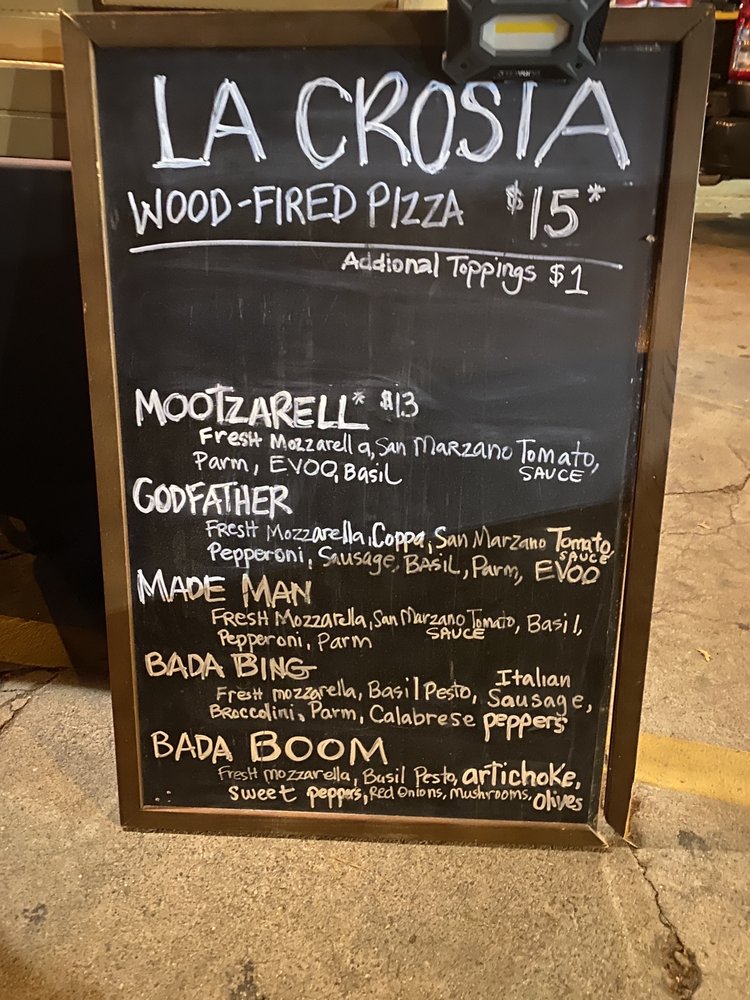 LA CROSTA
WOOD-FIRED PIZZA $15*
Addional Toppings $1
MOOTZARELL* $13
FRESH MOZZARELLA, SAN MARZANO TOMATO,
SAUCE
Parm, EVOO, Basil
GODFATHER
FRESH MOZZARELLA, Coppa, SAN MARZANO Tomato,
SAUCE
Pepperoni, Sausage, BASIL, Parm, EVOO
MADE MAN
FRESH MOZZARELLA, San MARZANO Tomato, Basil,
SAUCE
Pepperoni, Parm
BADA BING
Fresh mozzarella, Basil Pesto, Italian Sausage,
BROCCOLINI, Parm, Calabrese peppers
BADA BOOM
Fresh mozzarella, Basil Pesto, artichoke,
sweet peppers, Red Onions, mushrooms, Olives